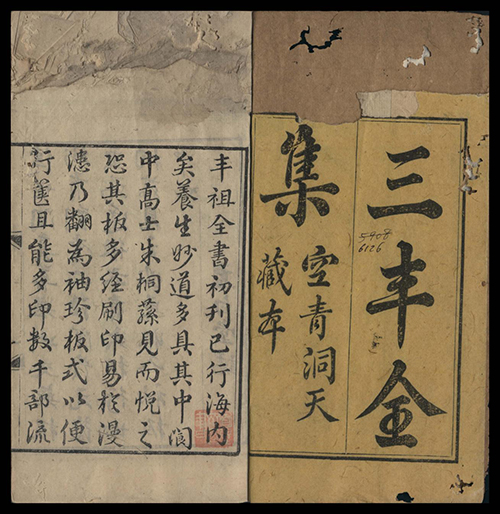 三丰全
集
空青洞天
藏本
5408
6126
丰祖全書初刊已行海内
矣養生妙道多具其中閬
中高士朱桐蓀見而悦之
恐其板多經刷印易於漫
漶乃翻為袖珍板式以便
行篋且能多印数千部流